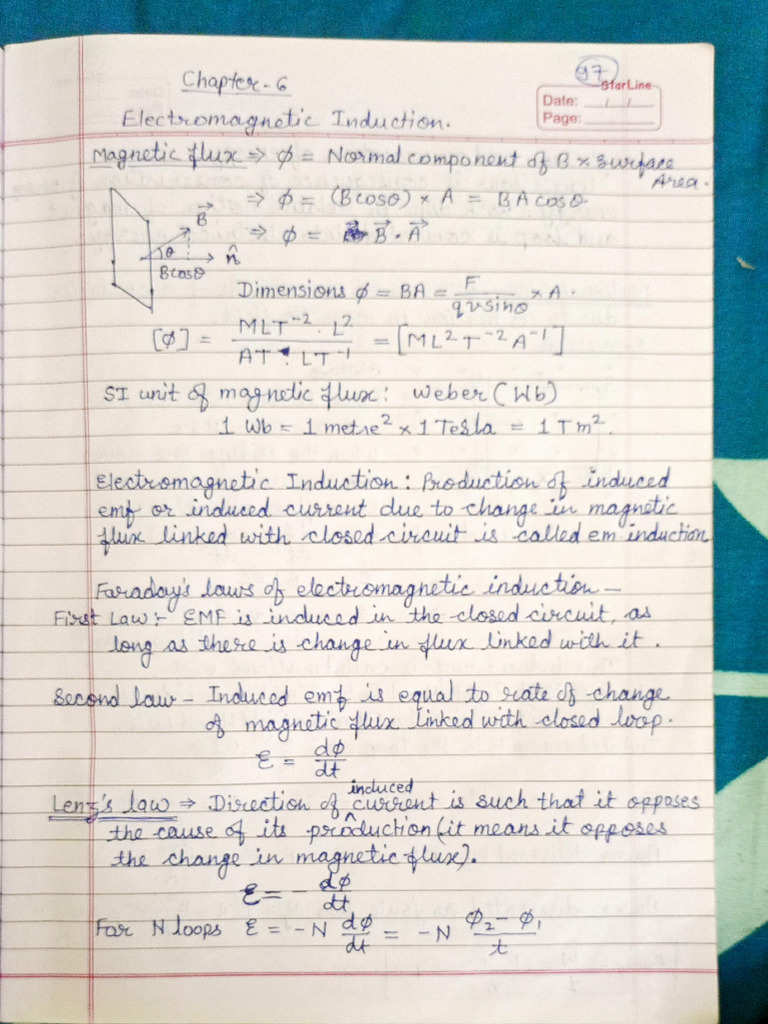 97
StarLine
Date: / /
Page:
Chapter-6
Electromagnetic Induction.
Magnetic flux ⇒ φ = Normal component of B × Surface Area.
⇒ φ = (Bcosθ) × A = BAcosθ
⇒ φ = B⃗ . A⃗
B⃗
θ
n̂
Bcosθ
Dimensions φ = BA = F/qvsinθ × A.
[φ] = MLT⁻² . L² / AT . LT⁻¹ = [ML²T⁻²A⁻¹]
SI unit of magnetic flux: Weber (Wb)
1 Wb = 1 metre² × 1 Tesla = 1 Tm².
Electromagnetic Induction: Production of induced
emf or induced current due to change in magnetic
flux linked with closed circuit is called em induction
Faraday's laws of electromagnetic induction –
First Law :- EMF is induced in the closed circuit, as
long as there is change in flux linked with it.
Second law – Induced emf is equal to rate of change
of magnetic flux linked with closed loop.
ε = dφ/dt
Lenz's law ⇒ Direction of induced current is such that it opposes
the cause of its production (it means it opposes
the change in magnetic flux).
ε = - dφ/dt
For N loops ε = -N dφ/dt = -N φ₂ - φ₁/t